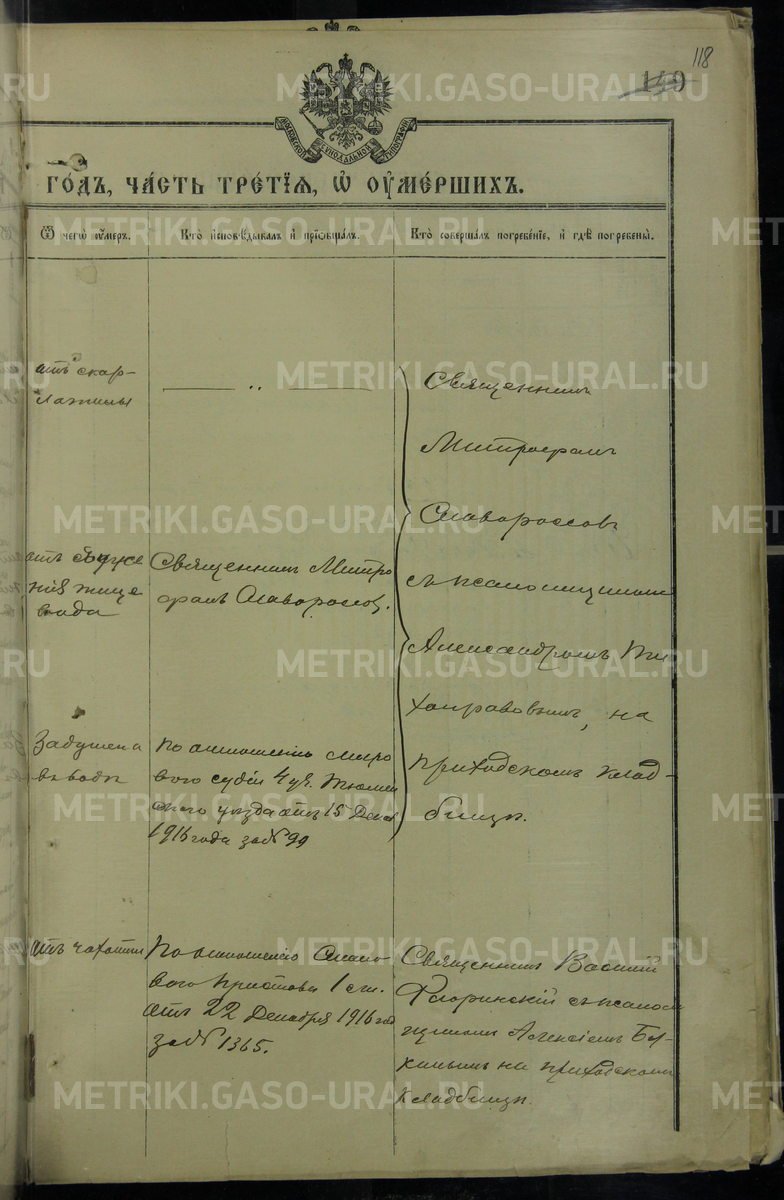 118
149
МОСКОВСКОЙ СѴНОДАЛЬНОЙ ТИПОГРАФІИ
го́дъ, ча́сть тре́тїѧ, ѡ҆ оу҆ме́ршихъ.
Ѿ чегѡ̀ оу҆́меръ.
Кто̀ и҆сповѣ́дывалъ и҆ прїѡбща́лъ.
Кто̀ соверша́лъ погребе́нїе, и҆ гдѣ̀ погребены̀.
отъ скар-
латины
Священникъ
Митрофанъ
Славороссовъ
съ псаломщикомъ
Александромъ Ти
хонравовымъ, на
приходскомъ клад-
бищѣ.
отъ суже
нія пище
вода
Священникъ Митро
фанъ Славороссов.
Задушена
въ водѣ
по отношенію миро
вого судьи 4 уч. Тюмен
скаго уѣзда отъ 15 Дека
1916 года за № 99
отъ чахотки
По отношенію Стано-
вого пристава 1 ст.
отъ 22 Декабря 1916 год
за № 1365.
Священникъ Василій
Флоринскій съ псалом
щикомъ Алексіемъ Бу-
на приходскомъ
кладбищѣ.
METRIKI.GASO-URAL.RU